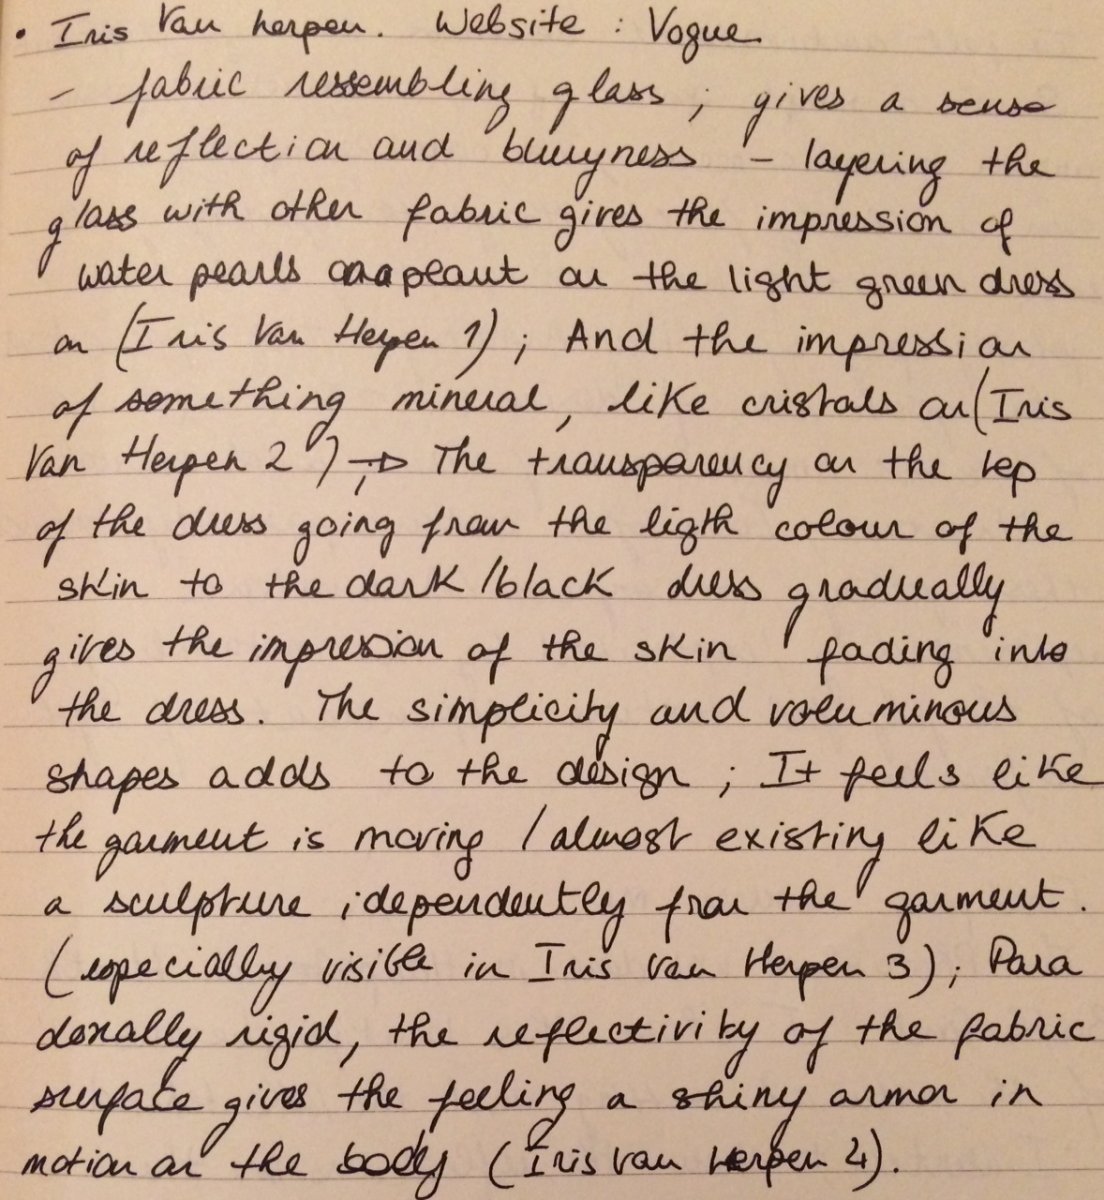 • Iris Van herpen. Website : Vogue
- fabric ressembling glass ; gives a sense
of reflection and bluryness - layering the
glass with other fabric gives the impression of
water pearls on a plant on the light green dress
on (Iris Van Herpen 1) ; And the impression
of something mineral, like cristals on (Iris
Van Herpen 2) ; → The transparency on the top
of the dress going from the ligth colour of the
skin to the dark /black dress gradually
gives the impression of the skin fading into
the dress. The simplicity and voluminous
shapes adds to the design ; It feels like
the garment is moving / almost existing like
a sculpture idependently from the garment.
(especially visible in Iris Van Herpen 3) ; Para
doxally rigid, the reflectivity of the fabric
surface gives the feeling a shiny armor in
motion on the body (Iris van Herpen 4).